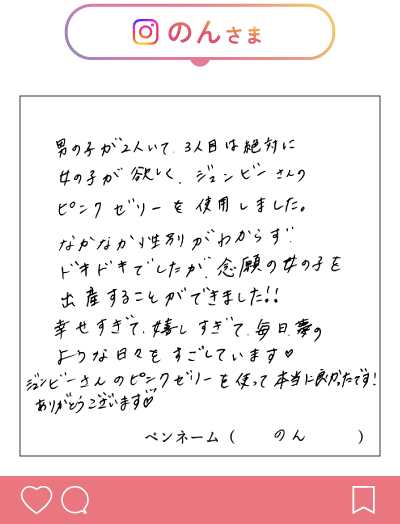 のんさま
男の子が2人いて、3人目は絶対に
女の子が欲しく、ジュンビーさんの
ピンクゼリーを使用しました。
なかなか性別がわからず
ドキドキでしたが、念願の女の子を
出産することができました!!
幸せすぎて、嬉しすぎて、毎日、夢の
ような日々をすごしています♡
ジュンビーさんのピンクゼリーを使って本当に良かったです!
ありがとうございます♡
ペンネーム( のん )